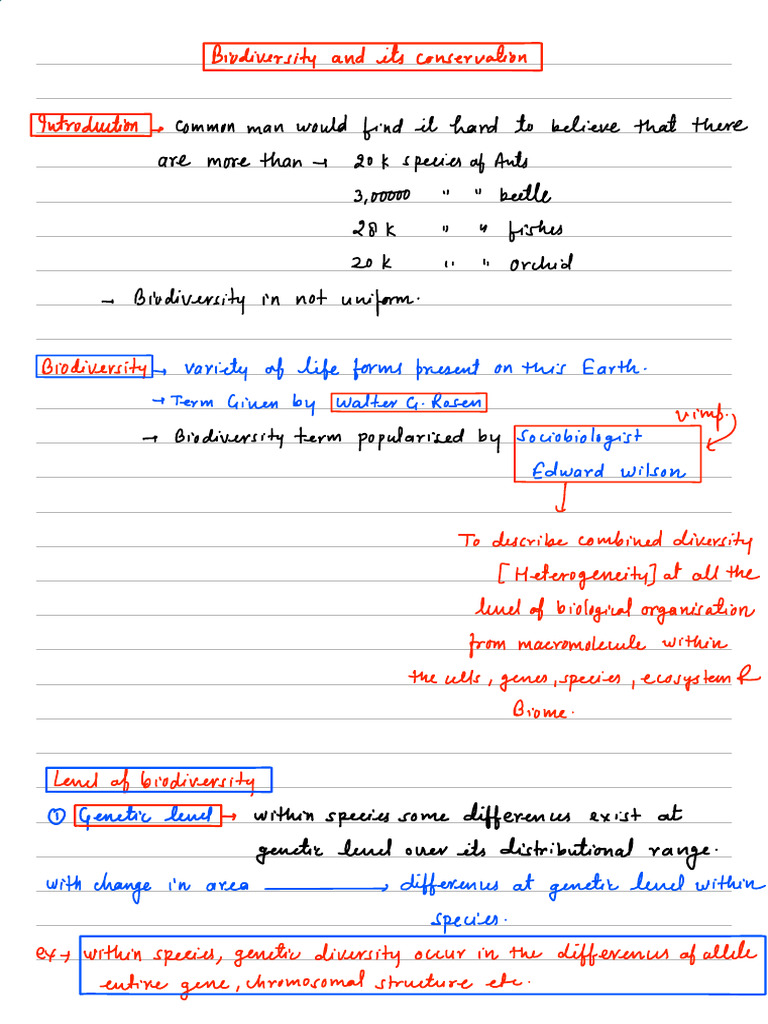 Biodiversity and its conservation
Introduction → common man would find it hard to believe that there
are more than → 20 k species of Ants
3,00000 " " beetle
28 k " " fishes
20 k " " orchid
→ Biodiversity in not uniform.
Biodiversity → variety of life forms present on this Earth.
→ Term Given by Walter G. Rosen
v imp.
→ Biodiversity term popularised by Sociobiologist
Edward Wilson
To describe combined diversity
[Heterogeneity] at all the
level of biological organisation
from macromolecule within
the cells, genes, species, ecosystem &
Biome.
Level of biodiversity
① Genetic level → within species some differences exist at
genetic level over its distributional range.
with change in area → differences at genetic level within
species.
ex → within species, genetic diversity occur in the differences of allele
entire gene, chromosomal structure etc.